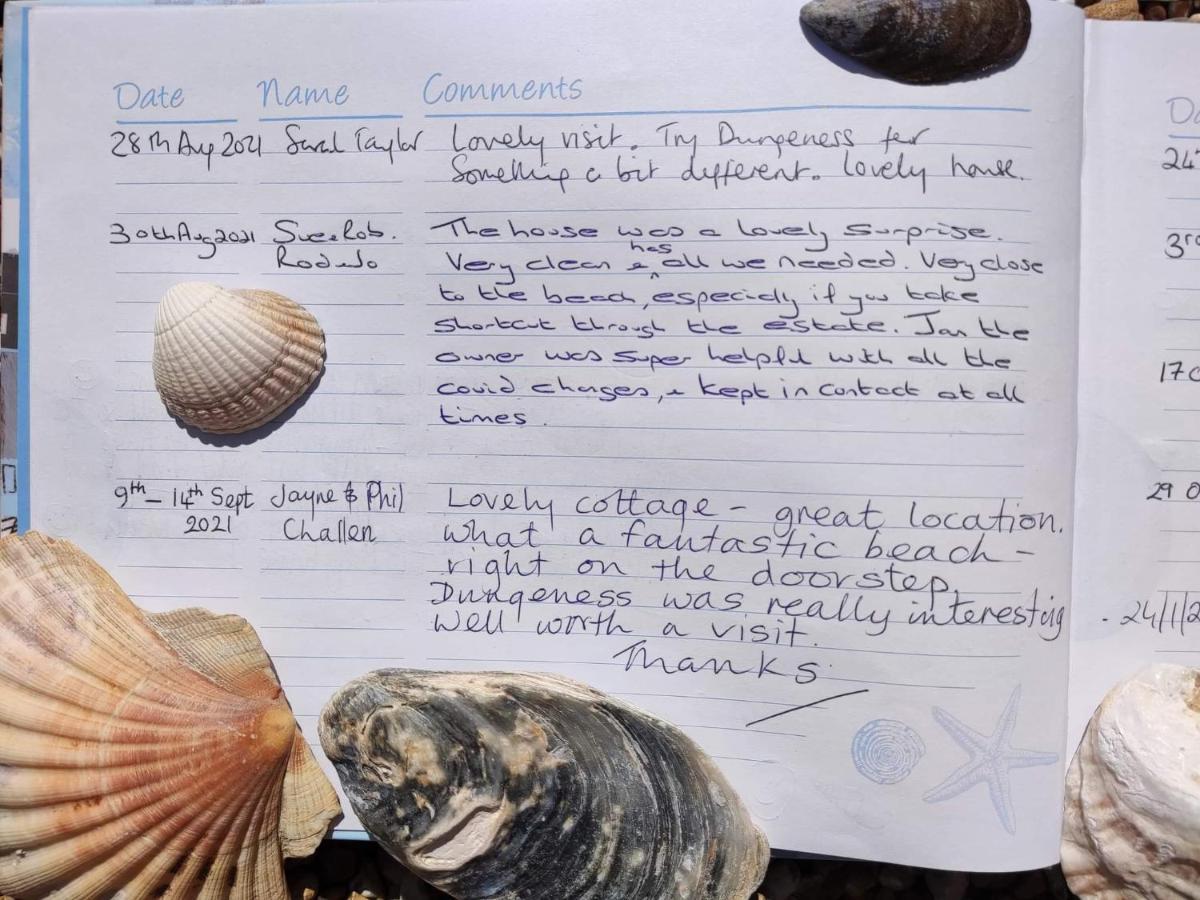 Date Name Comments
28th Aug 2021 Sarah Taylor Lovely visit. Try Dungeness for
Something a bit different. lovely house.
30th Aug 2021 Sue & Rob. The house was a lovely surprise.
Very clean & has all we needed. Very close
to the beach, especially if you take
shortcut through the estate. Jan the
owner was super helpful with all the
covid changes, & kept in contact at all
times.
9th - 14th Sept Jayne & Phil Lovely cottage - great location.
2021 Challen What a fantastic beach -
right on the doorstep.
Dungeness was really interesting
Well worth a visit.
Thanks
24
3rd
17
29
24/1/2